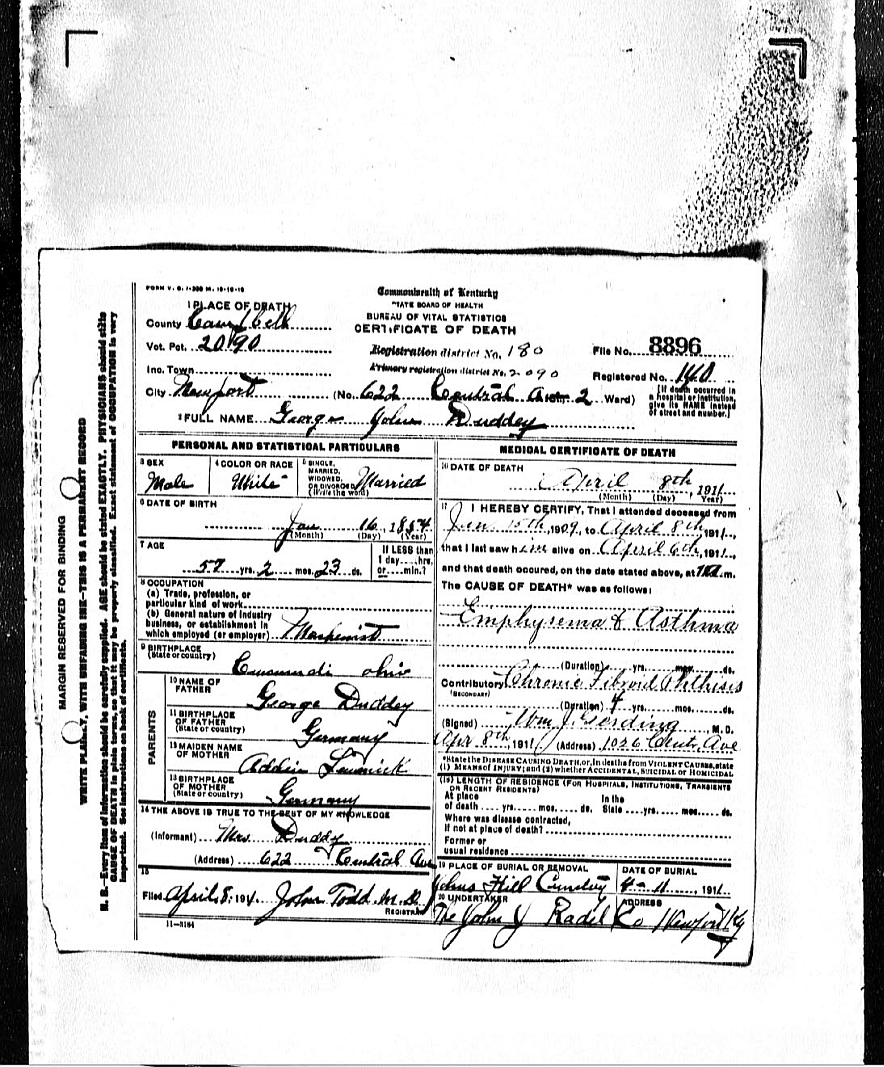 FORM V. S. 1-300 M. 10-10-10
Commonwealth of Kentucky
STATE BOARD OF HEALTH
BUREAU OF VITAL STATISTICS
CERTIFICATE OF DEATH
1 PLACE OF DEATH
County Campbell
Vot. Pct. 2090
Registration district No. 180
File No. 8896
Inc. Town
Primary registration district No. 2090
Registered No. 140
City Newport (No. 622 Central Ave 2 Ward)
[If death occurred in a hospital or institution, give its NAME instead of street and number.]
2 FULL NAME George John Duddey
PERSONAL AND STATISTICAL PARTICULARS
3 SEX Male
4 COLOR OR RACE White
5 SINGLE, MARRIED, WIDOWED, OR DIVORCED (Write the word) Married
6 DATE OF BIRTH
Jan 16, 1854
(Month) (Day) (Year)
7 AGE
57 yrs. 2 mos. 23 ds.
If LESS than 1 day....hrs. or....min.?
8 OCCUPATION
(a) Trade, profession, or particular kind of work
(b) General nature of industry business, or establishment in which employed (or employer)
9 BIRTHPLACE (State or country)
ohio
PARENTS
10 NAME OF FATHER George Duddey
11 BIRTHPLACE OF FATHER (State or country) Germany
12 MAIDEN NAME OF MOTHER
13 BIRTHPLACE OF MOTHER (State or country) Germany
14 THE ABOVE IS TRUE TO THE BEST OF MY KNOWLEDGE
(Informant) Mrs. Duddy
(Address) 622 Central Ave
15
Filed April 8, 1911. John Todd M.D.
REGISTRAR
11-3184
MEDICAL CERTIFICATE OF DEATH
16 DATE OF DEATH
April 8th, 1911
(Month) (Day) (Year)
17 I HEREBY CERTIFY, That I attended deceased from
15th, 1909, to April 8th, 1911.,
that I last saw him alive on April 6th, 1911.,
and that death occured, on the date stated above, at m.
The CAUSE OF DEATH* was as follows:
Emphysema & Asthma
(Duration) yrs. mos. ds.
Contributory Chronic Fibroid Phthisis
(SECONDARY)
(Duration) yrs. mos. ds.
(Signed) Wm J. Gerding M. D.
Apr 8th, 1911 (Address) 1026 Ave
*State the DISEASE CAUSING DEATH, or, in deaths from VIOLENT CAUSES, state
(1) MEANS of INJURY; and (2) whether ACCIDENTAL, SUICIDAL or HOMICIDAL
(18) LENGTH OF RESIDENCE (FOR HOSPITALS, INSTITUTIONS, TRANSIENTS OR RECENT RESIDENTS)
At place of death yrs. mos. ds. In the State yrs. mos. ds.
Where was disease contracted,
if not at place of death?
Former or
usual residence
19 PLACE OF BURIAL OR REMOVAL
DATE OF BURIAL
Johns Hill 4-11, 1911
20 UNDERTAKER
ADDRESS
The John J Radel Co Newport Ky
MARGIN RESERVED FOR BINDING
WRITE PLAINLY, WITH UNFADING INK—THIS IS A PERMANENT RECORD
N. B.—Every item of information should be carefully supplied. AGE should be stated EXACTLY. PHYSICIANS should state
CAUSE OF DEATH in plain terms, so that it may be properly classified. Exact statement of OCCUPATION is very
important. See instructions on back of certificate.